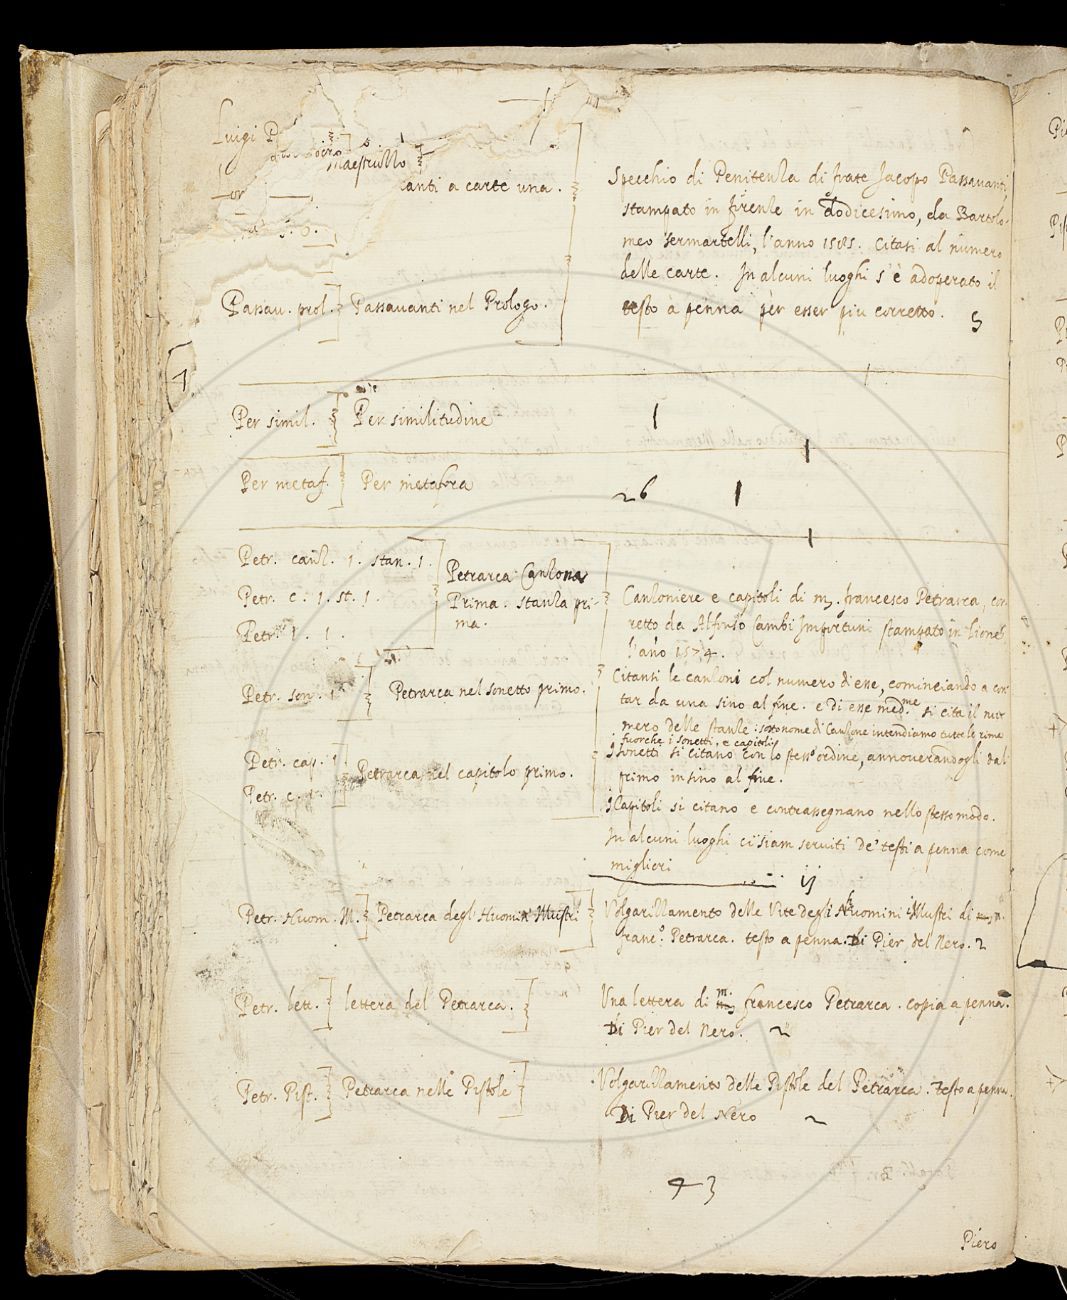 Luigi P
Maestruzzo
canti a carte una.
Specchio di Penitenza di frate Jacopo Passavanti
stampato in firenze in dodicesimo, da Bartolo-
meo Sermartelli, l'anno 1585. Citasi al numero
delle carte. In alcuni luoghi s'è adoperato il
testo à penna per esser piu corretto. 5
Passau. prol. Passauanti nel Prologo.
Per simil. Per similitudine
Per metaf. Per metafora 26
Petr. canz. 1. stan. 1.
Petr. c. 1. st. 1.
Petr. 1. 1.
Petrarca Canzona
Prima. stanza pri-
ma.
Canzoniere e capitoli di m. francesco Petrarca, cor
retto da Alfonso Cambi Importuni stampato in Lione
l'año 1574.
Citansi le canzoni col numero d'esse, cominciando a con
tar da una sino al fine. e di esse med.me si cita il nu
mero delle stanze: sotto nome di Canzone intendiamo tutte le rime
fuorche i sonetti, e capitoli
I sonetti si citano con lo stesso ordine, annouerandogli dal
primo insino al fine.
I Capitoli si citano e contrassegnano nello stesso modo.
In alcuni luoghi ci siam seruiti de' testi a penna come
miglieri ij
Petr. son. 1. Petrarca nel sonetto primo.
Petr. cap. 1
Petr. c. 1.
Petrarca nel capitolo primo.
Petr. Huom. Ill. Petrarca degl' Huomin Illustri
Volgarizzamento delle Vite degli Huomini Illustri di m.
franc.o Petrarca. testo a penna. Di Pier del Nero. 2
Petr. lett. lettera del Petrarca.
Una lettera di m. francesco Petrarca. copia a penna.
Di Pier del Nero. 2
Petr. Pist. Petrarca nelle Pistole
Volgarizzamento delle Pistole del Petrarca. testo a penna.
Di Pier del Nero 2
43
Piero